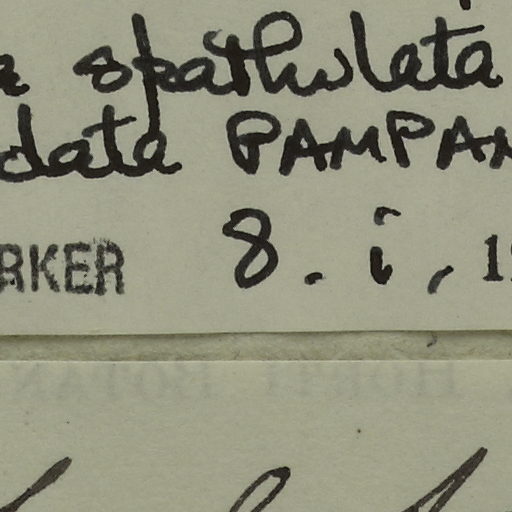 a spathulata
data PAMPAN
RKER 8. i, 19